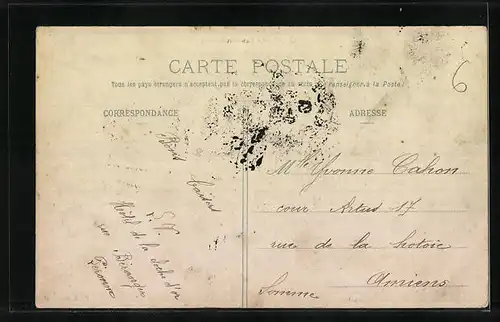 CARTE POSTALE
Tous les pays étrangers n'acceptent pas la correspondance au recto (se renseigner à la Poste)
CORRESPONDANCE
ADRESSE
6
Mlle Yvonne Cahon
cour Artus 17
rue de la Hotoie
Amiens
Somme
Bons
baisers
Hôtel de la